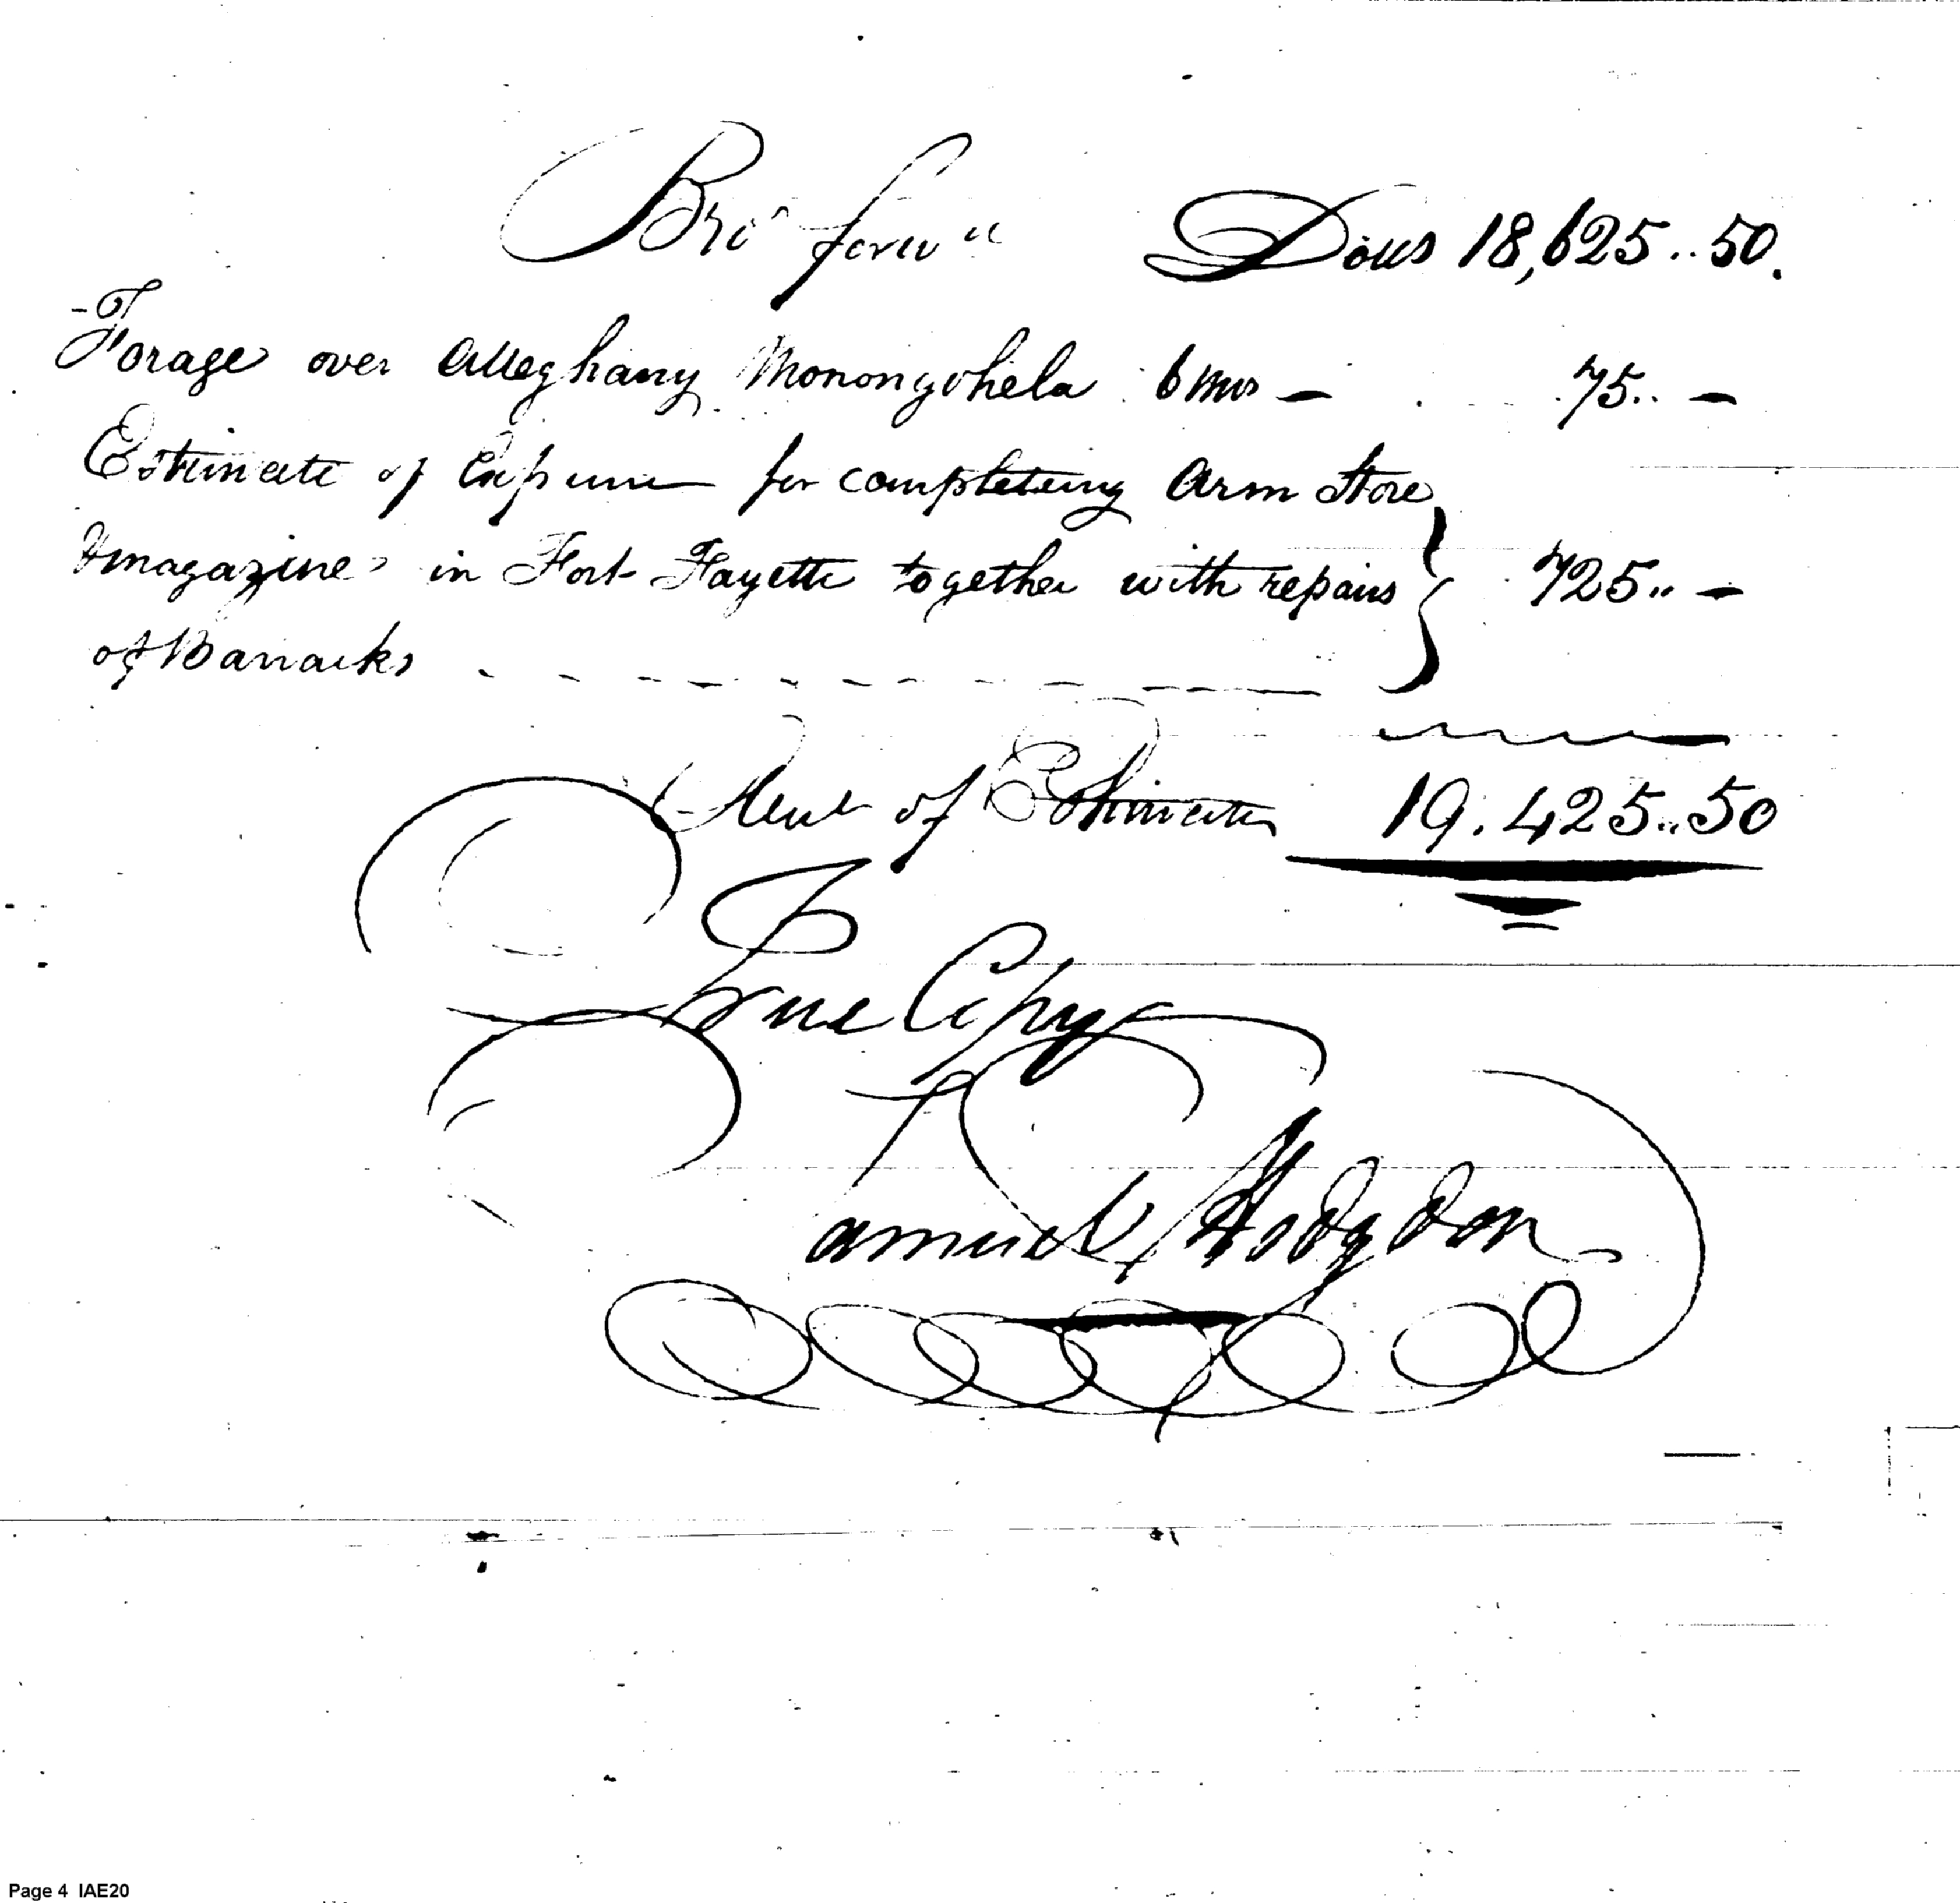 Bro' forwd Dolls 18,625..50.
Forage over Alleghany Monongohela 6 mos — 75.. —
Estimate of Expense for completeing Arm Store
& magazine in Fort Fayette together with repairs 725.. —
of Barracks
Amt of Estimate 19.425..50
True Copy
Samuel Hodgdon
Page 4 IAE20